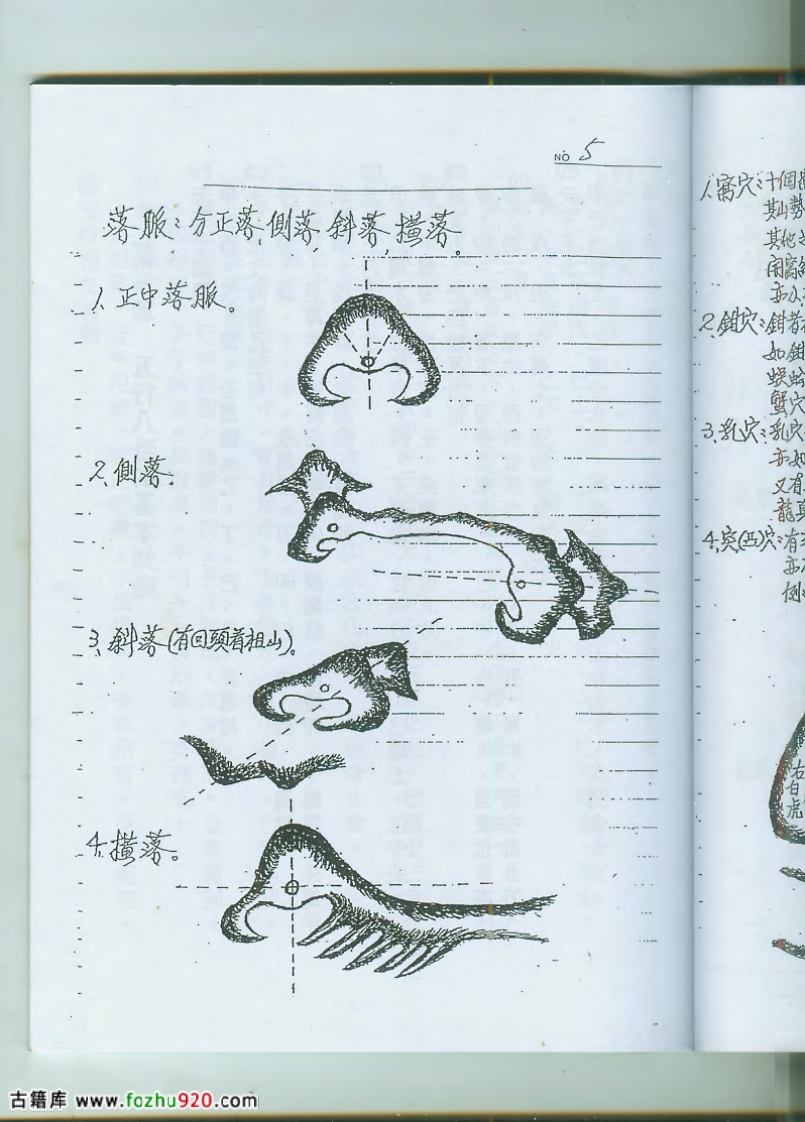 NO 5
落脈：分正落,側落,斜落,橫落。
1、正中落脈。
2、側落：
3、斜落(有回頭看祖山)。
4、橫落。
1、窩穴：十個
其山勢
其他
開窩
亦
2、鉗穴：鉗者
如鉗
蜈蚣
蟹穴
3、乳穴：乳穴
亦如
又有
龍真
4、突(凸)穴：有
亦
例
右白虎
古籍库 www.fozhu920.com